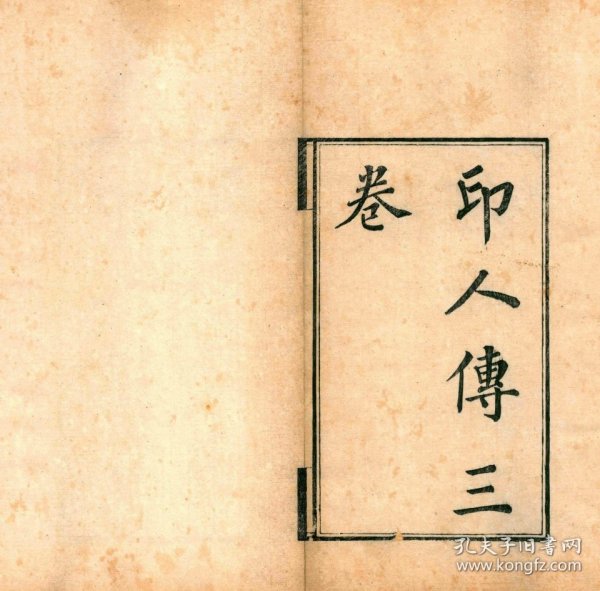 印人傳三
卷
孔夫子旧书网
www.kongfz.com